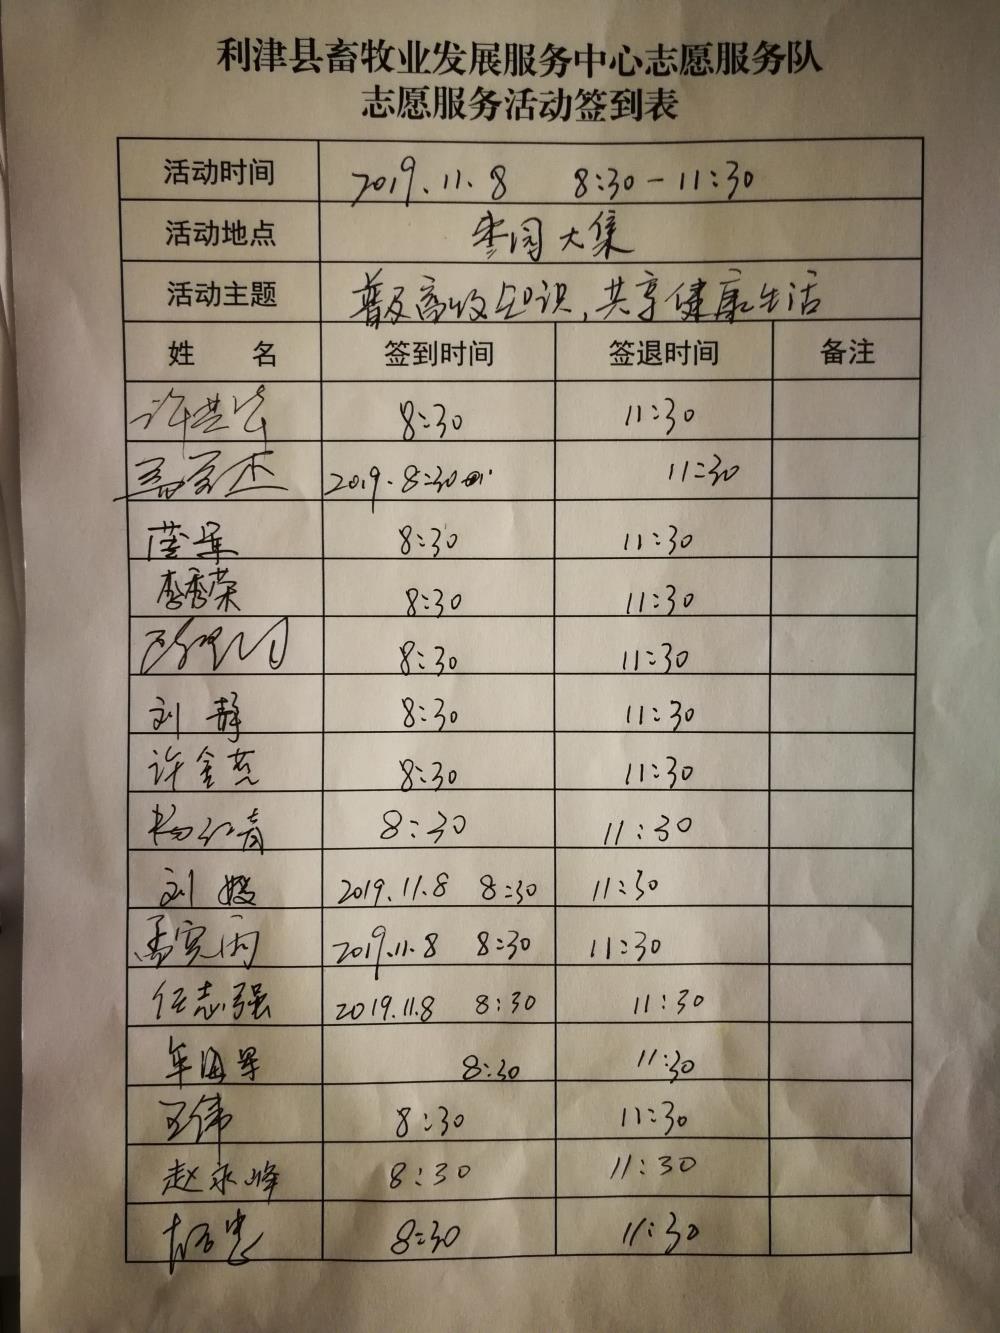 利津县畜牧业发展服务中心志愿服务队
志愿服务活动签到表
活动时间 2019.11.8 8:30-11:30
活动地点 枣园大集
活动主题 普及畜牧知识,共享健康生活
姓 名 签到时间 签退时间 备注
8:30 11:30
2019. 8:30 11:30
8:30 11:30
李秀荣 8:30 11:30
8:30 11:30
刘静 8:30 11:30
许金燕 8:30 11:30
杨红青 8:30 11:30
刘嫚 2019.11.8 8:30 11:30
2019.11.8 8:30 11:30
任志强 2019.11.8 8:30 11:30
牟海军 8:30 11:30
王伟 8:30 11:30
赵永峰 8:30 11:30
8:30 11:30